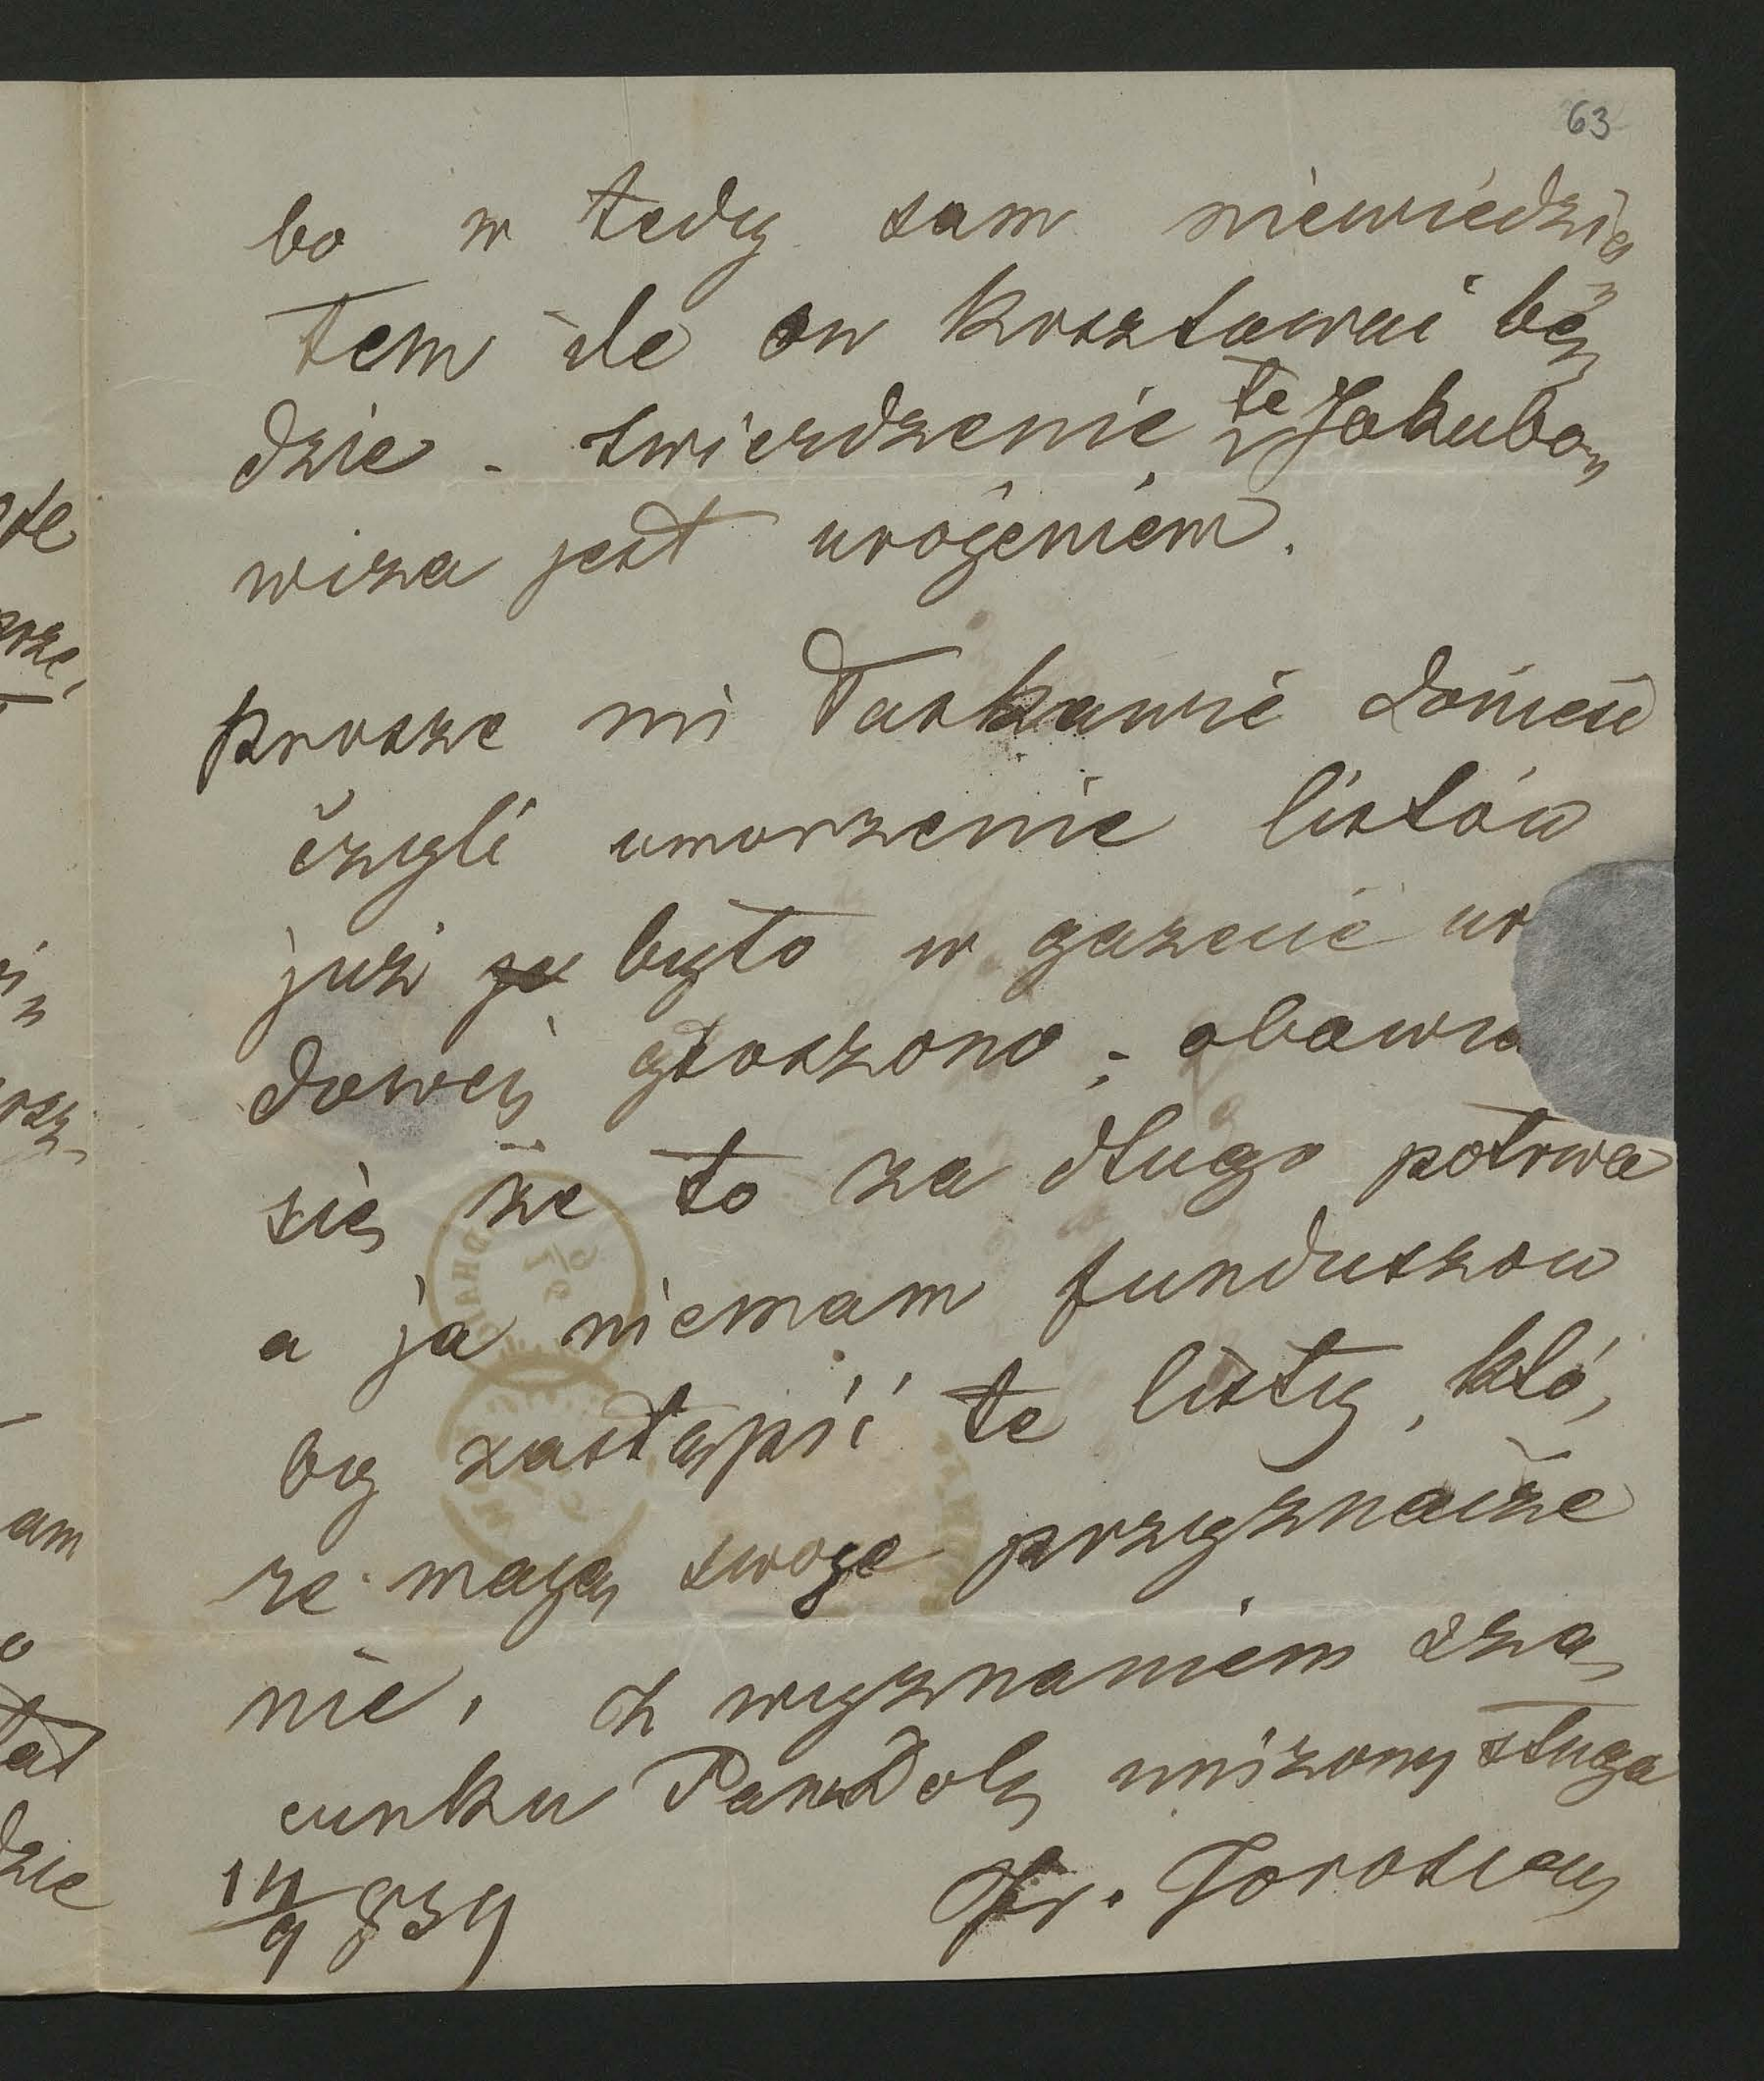 63
bo w tedy sam niewiedzia„
łem ile on kosztować bę„
dzie - twierdzenie te Jakubo„
wicza jest urojeniem.
prosze mi łaskawie donieść
czyli umorzenie listów
już było w gazecie ur
dowej głoszono; obawia
się że to za długo potrwa
a ja niemam funduszow
by zastąpić te listy, któ„
re mają swoje przyznacze
nie, z wyznaniem sza„
cunku Pana Dob. uniżony sługa
14/9 859
Fr.